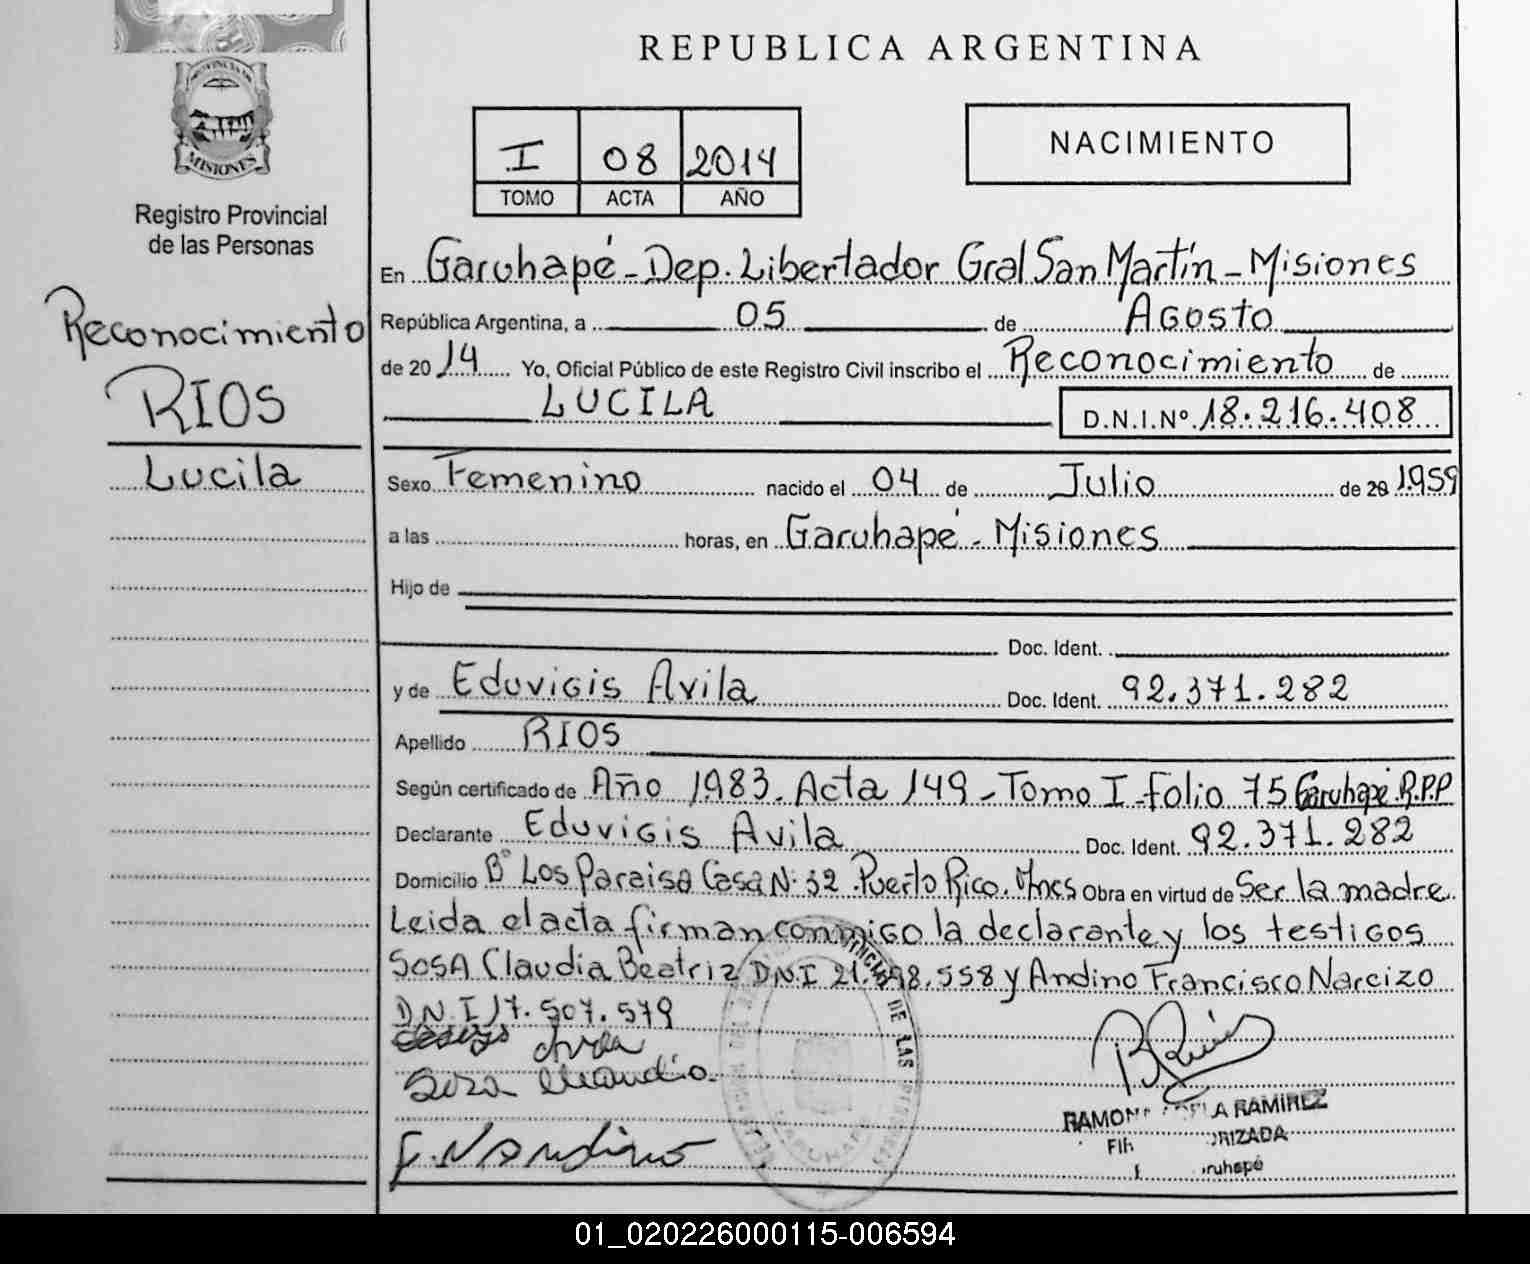 REPUBLICA ARGENTINA
MISIONES
Registro Provincial
de las Personas
Reconocimiento
RIOS
Lucila
I 08 2014
TOMO ACTA AÑO
NACIMIENTO
En Garuhapé - Dep. Libertador Gral San Martín - Misiones
República Argentina, a 05 de Agosto
de 2014 Yo, Oficial Público de este Registro Civil inscribo el Reconocimiento de
LUCILA D.N.I.Nº 18.216.408
Sexo Femenino nacido el 04 de Julio de 20 1959
a las horas, en Garuhapé - Misiones
Hijo de
Doc. Ident.
y de Eduvigis Avila Doc. Ident. 92.371.282
Apellido RIOS
Según certificado de Año 1983. Acta 149 - Tomo I - Folio 75 Garuhapé R.P.P
Declarante Eduvigis Avila Doc. Ident. 92.371.282
Domicilio Bº Los Paraiso Casa Nº 32 Puerto Rico. Mnes Obra en virtud de Ser la madre
Leida el acta firman conmigo la declarante y los testigos
SOSA Claudia Beatriz D.N.I 21. 98.558 y Andino Francisco Narcizo
D.N.I 17.507.579
Sosa Claudia
F. N Andino
RAMONA LA RAMIREZ
RIZADA
ruhapé
DE LAS
GARUHAPE
01_020226000115-006594